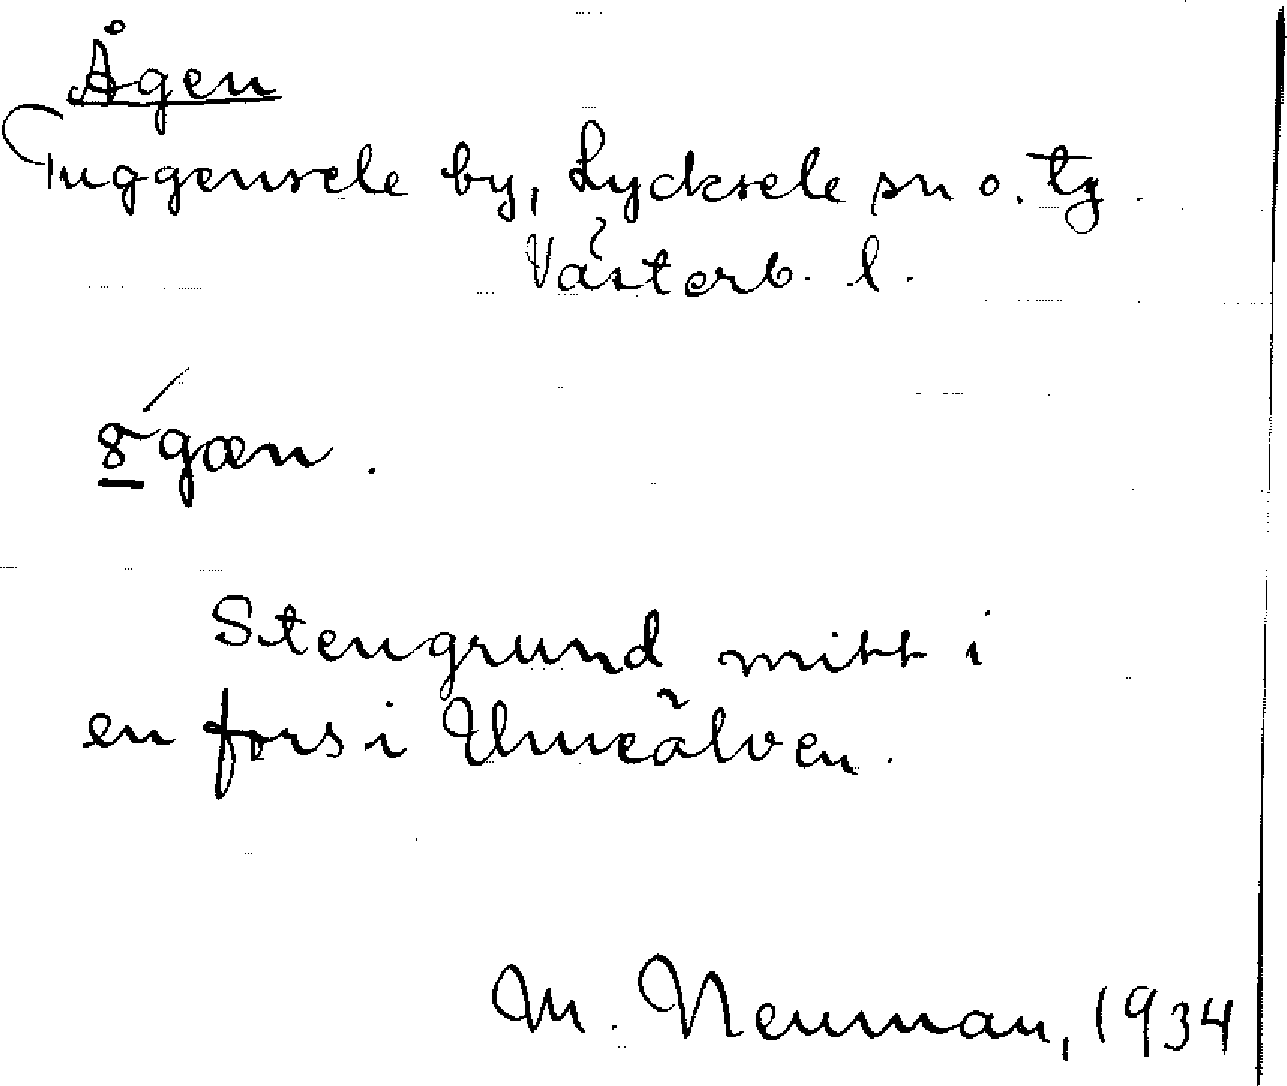 Ågen
Tuggensele by, Lycksele sn o. tg.
Västerb. l.
gæn.
Stengrund mitt i
en fors i Umeälven.
M. Neuman, 1934